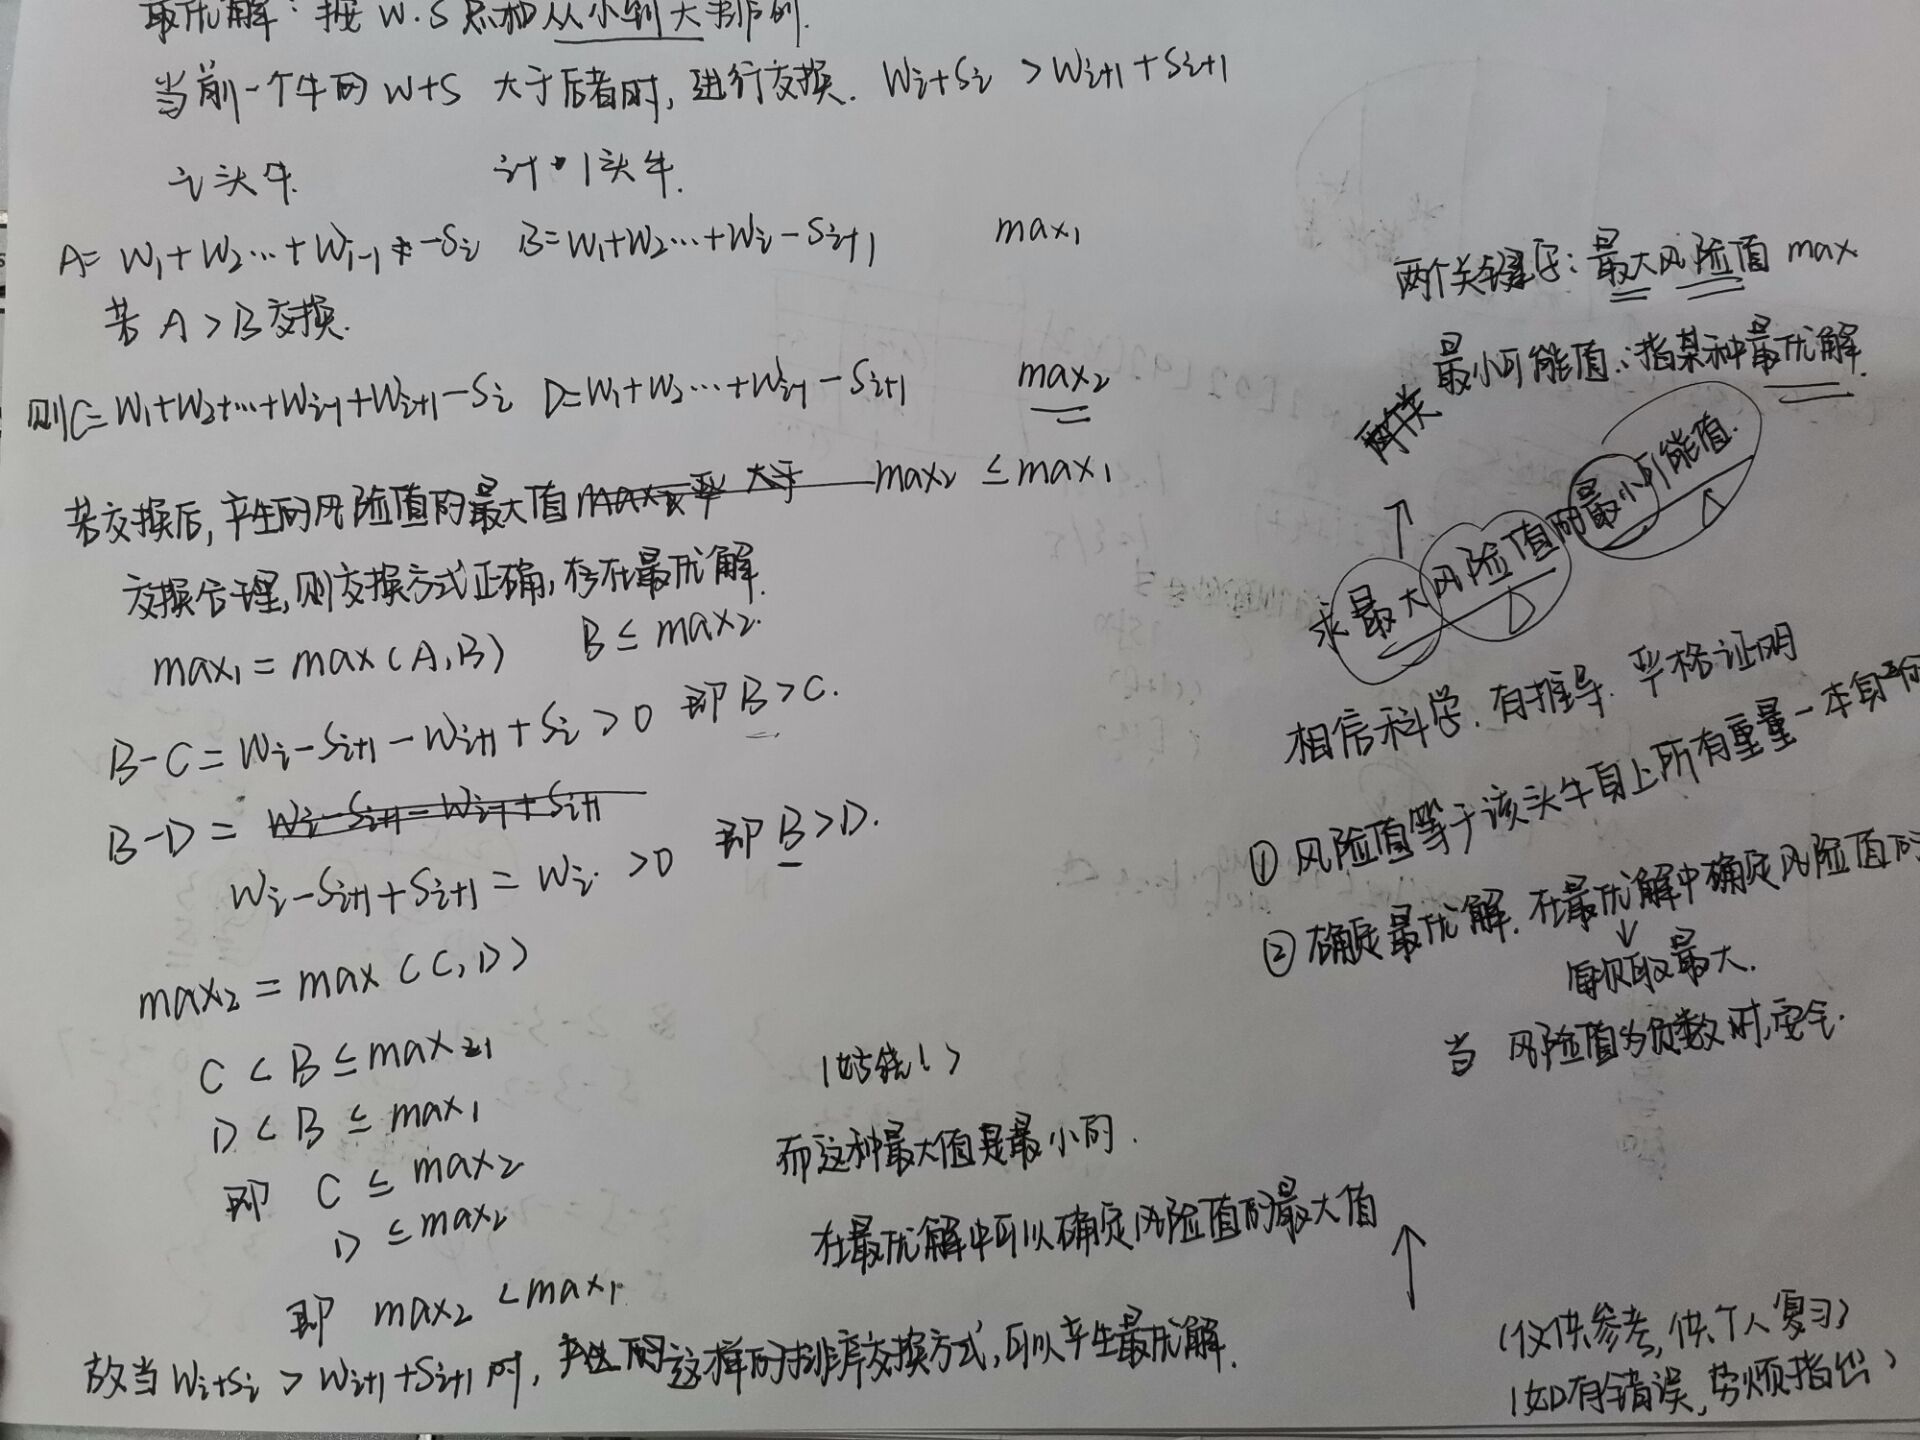 最优解：按W.S总和从小到大排列.
当前一个牛的W+S 大于后者时,进行交换. Wi+Si > Wi+1+Si+1
i头牛. i+1头牛.
A= W1+W2…+Wi-1-Si B=W1+W2…+Wi-Si+1 max1
若A>B交换.
则C=W1+W2+…+Wi-1+Wi+1-Si D=W1+W2…+Wi-1-Si+1 max2
若交换后,产生的风险值的最大值 max2 ≤ max1
交换合理,则交换方式正确,存在最优解.
max1=max(A,B) B≤max2.
B-C=Wi-Si+1-Wi+1+Si>0 即B>C.
B-D= Wi-Si+1-Wi-1+Si+1
Wi-Si+1+Si+1=Wi>0 即B>D.
max2=max(C,D)
C<B≤max1
D<B≤max1
即 C≤max2
D≤max2
即 max2<max1
故当Wi+Si>Wi+1+Si+1时,产生的这样的排序交换方式,可以产生最优解.
而这种最大值是最小的.
在最优解中可以确定风险值的最大值
两个关键字:最大风险值 max
最小可能值:指某种最优解.
求最大风险值的最小可能值.
相信科学.有推导.严格证明
①风险值等于该头牛身上所有重量-本身
②确定最优解.在最优解中确定风险值的
每次取最大.
当 风险值为负数时,安全.
(仅供参考,供个人复习)
(如有错误,劳烦指出)